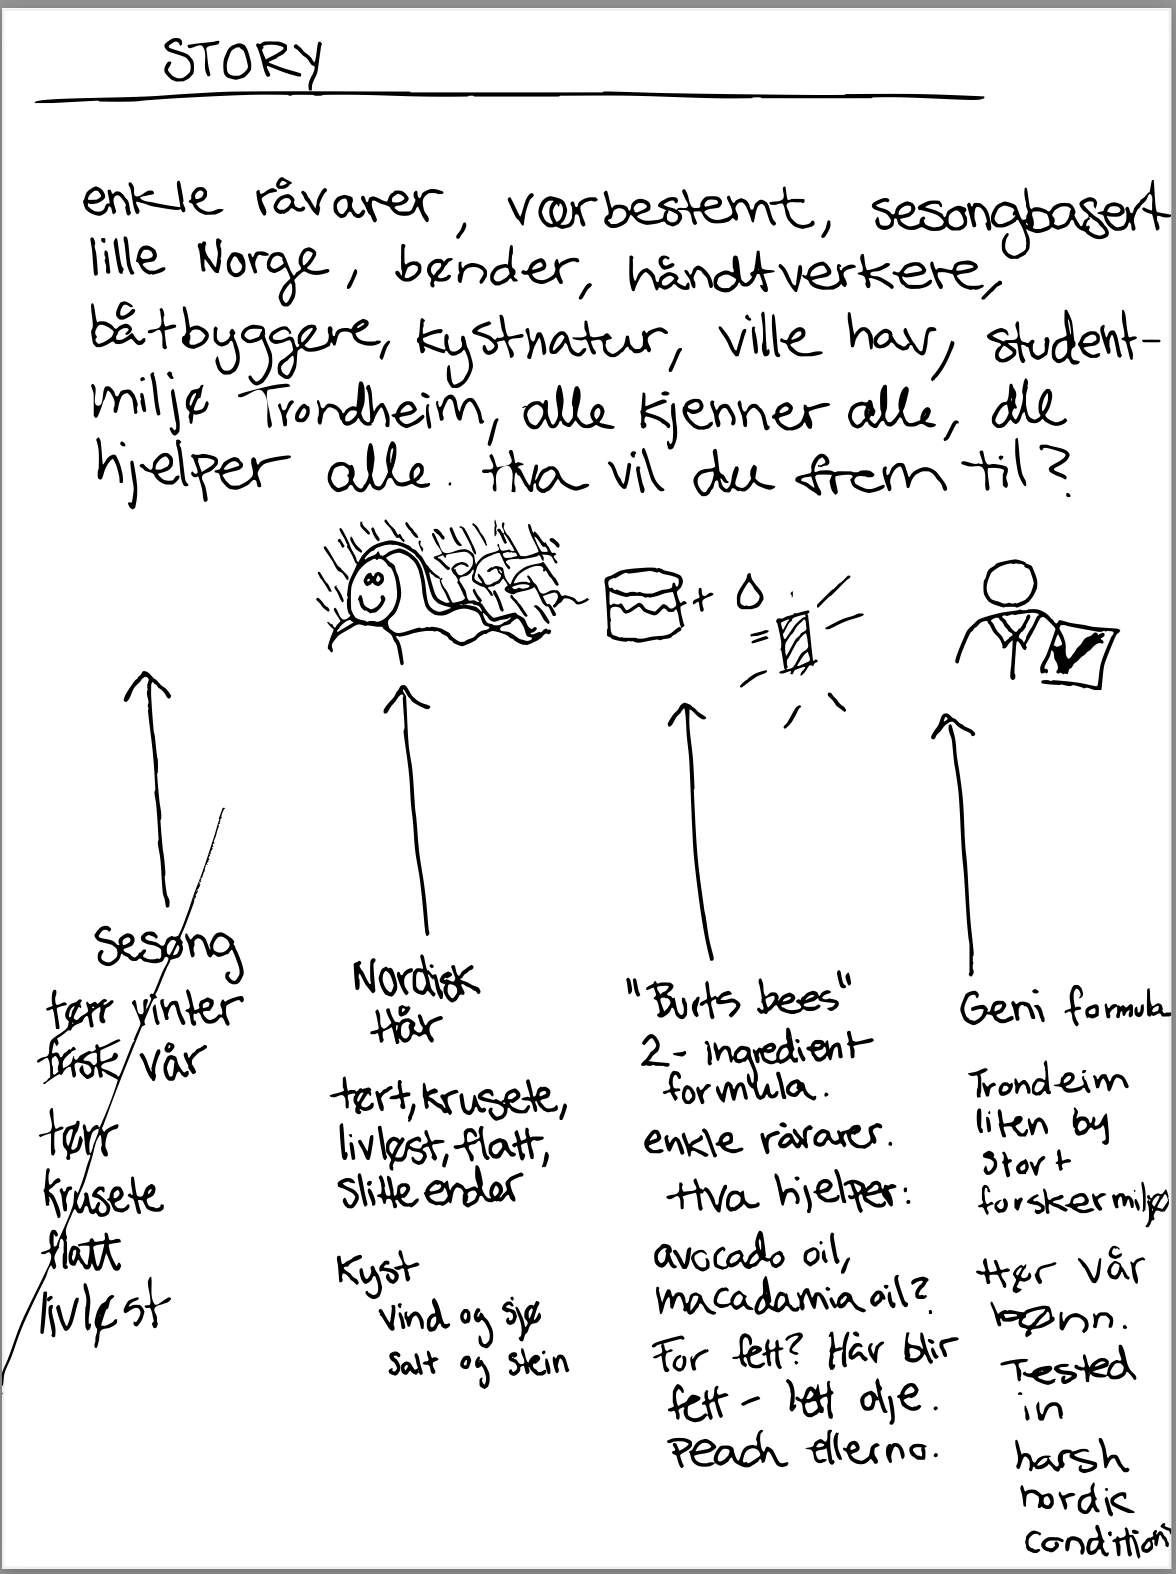 STORY
enkle råvarer, værbestemt, sesongbasert
lille Norge, bønder, håndtverkere,
båtbyggere, kystnatur, ville hav, student-
miljø Trondheim, alle kjenner alle, alle
hjelper alle. Hva vil du frem til?
Sesong
tørr vinter
frisk vår
tørr
krusete
flatt
livløst
Nordisk
Hår
tørt, krusete,
livløst, flatt,
slitte ender
Kyst
vind og sjø
salt og stein
"Burts bees"
2- ingredient
formula.
enkle råvarer.
Hva hjelper:
avocado oil,
macadamia oil?
For fett? Hår blir
fett - lett olje.
Peach ellerno.
Geni formula
Trondeim
liten by
stort
forskermiljø
Hør vår
bønn.
Tested
in
harsh
nordic
condition